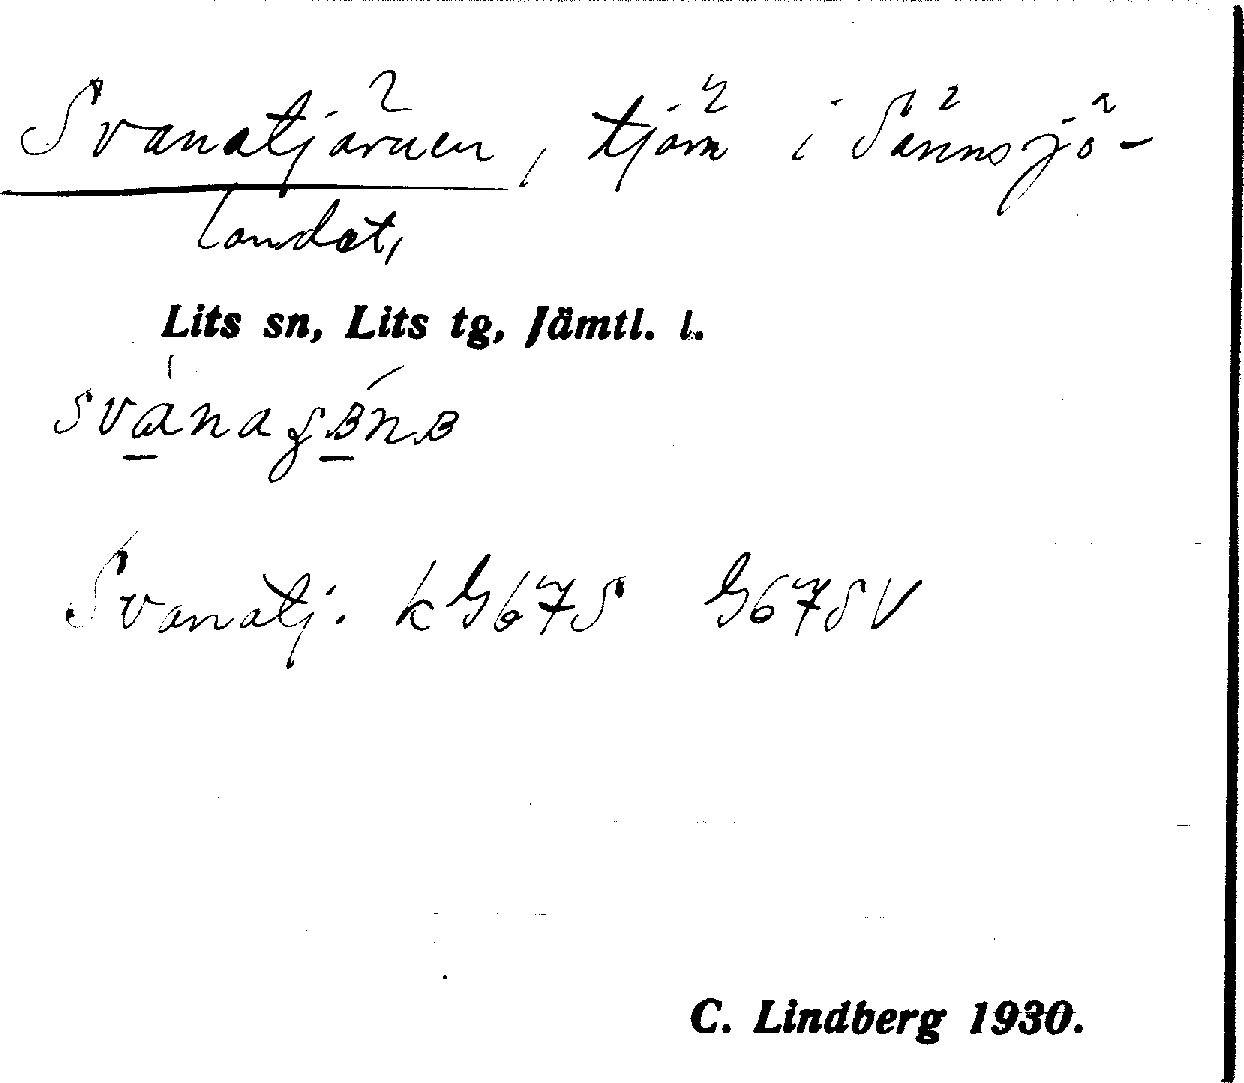 Svanatjärnen, tjärn i Sännsjö-
landet,
Lits sn, Lits tg, Jämtl. l.
Svanatj. k G67S G67SV
C. Lindberg 1930.